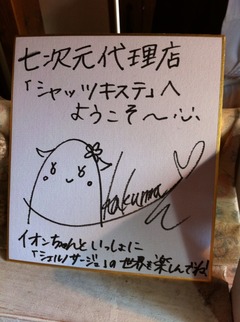 七次元代理店
「シャッツキステ」へ
ようこそ～
イオンちゃんといっしょに
「シェルノサージュ」の世界を楽しんでね!